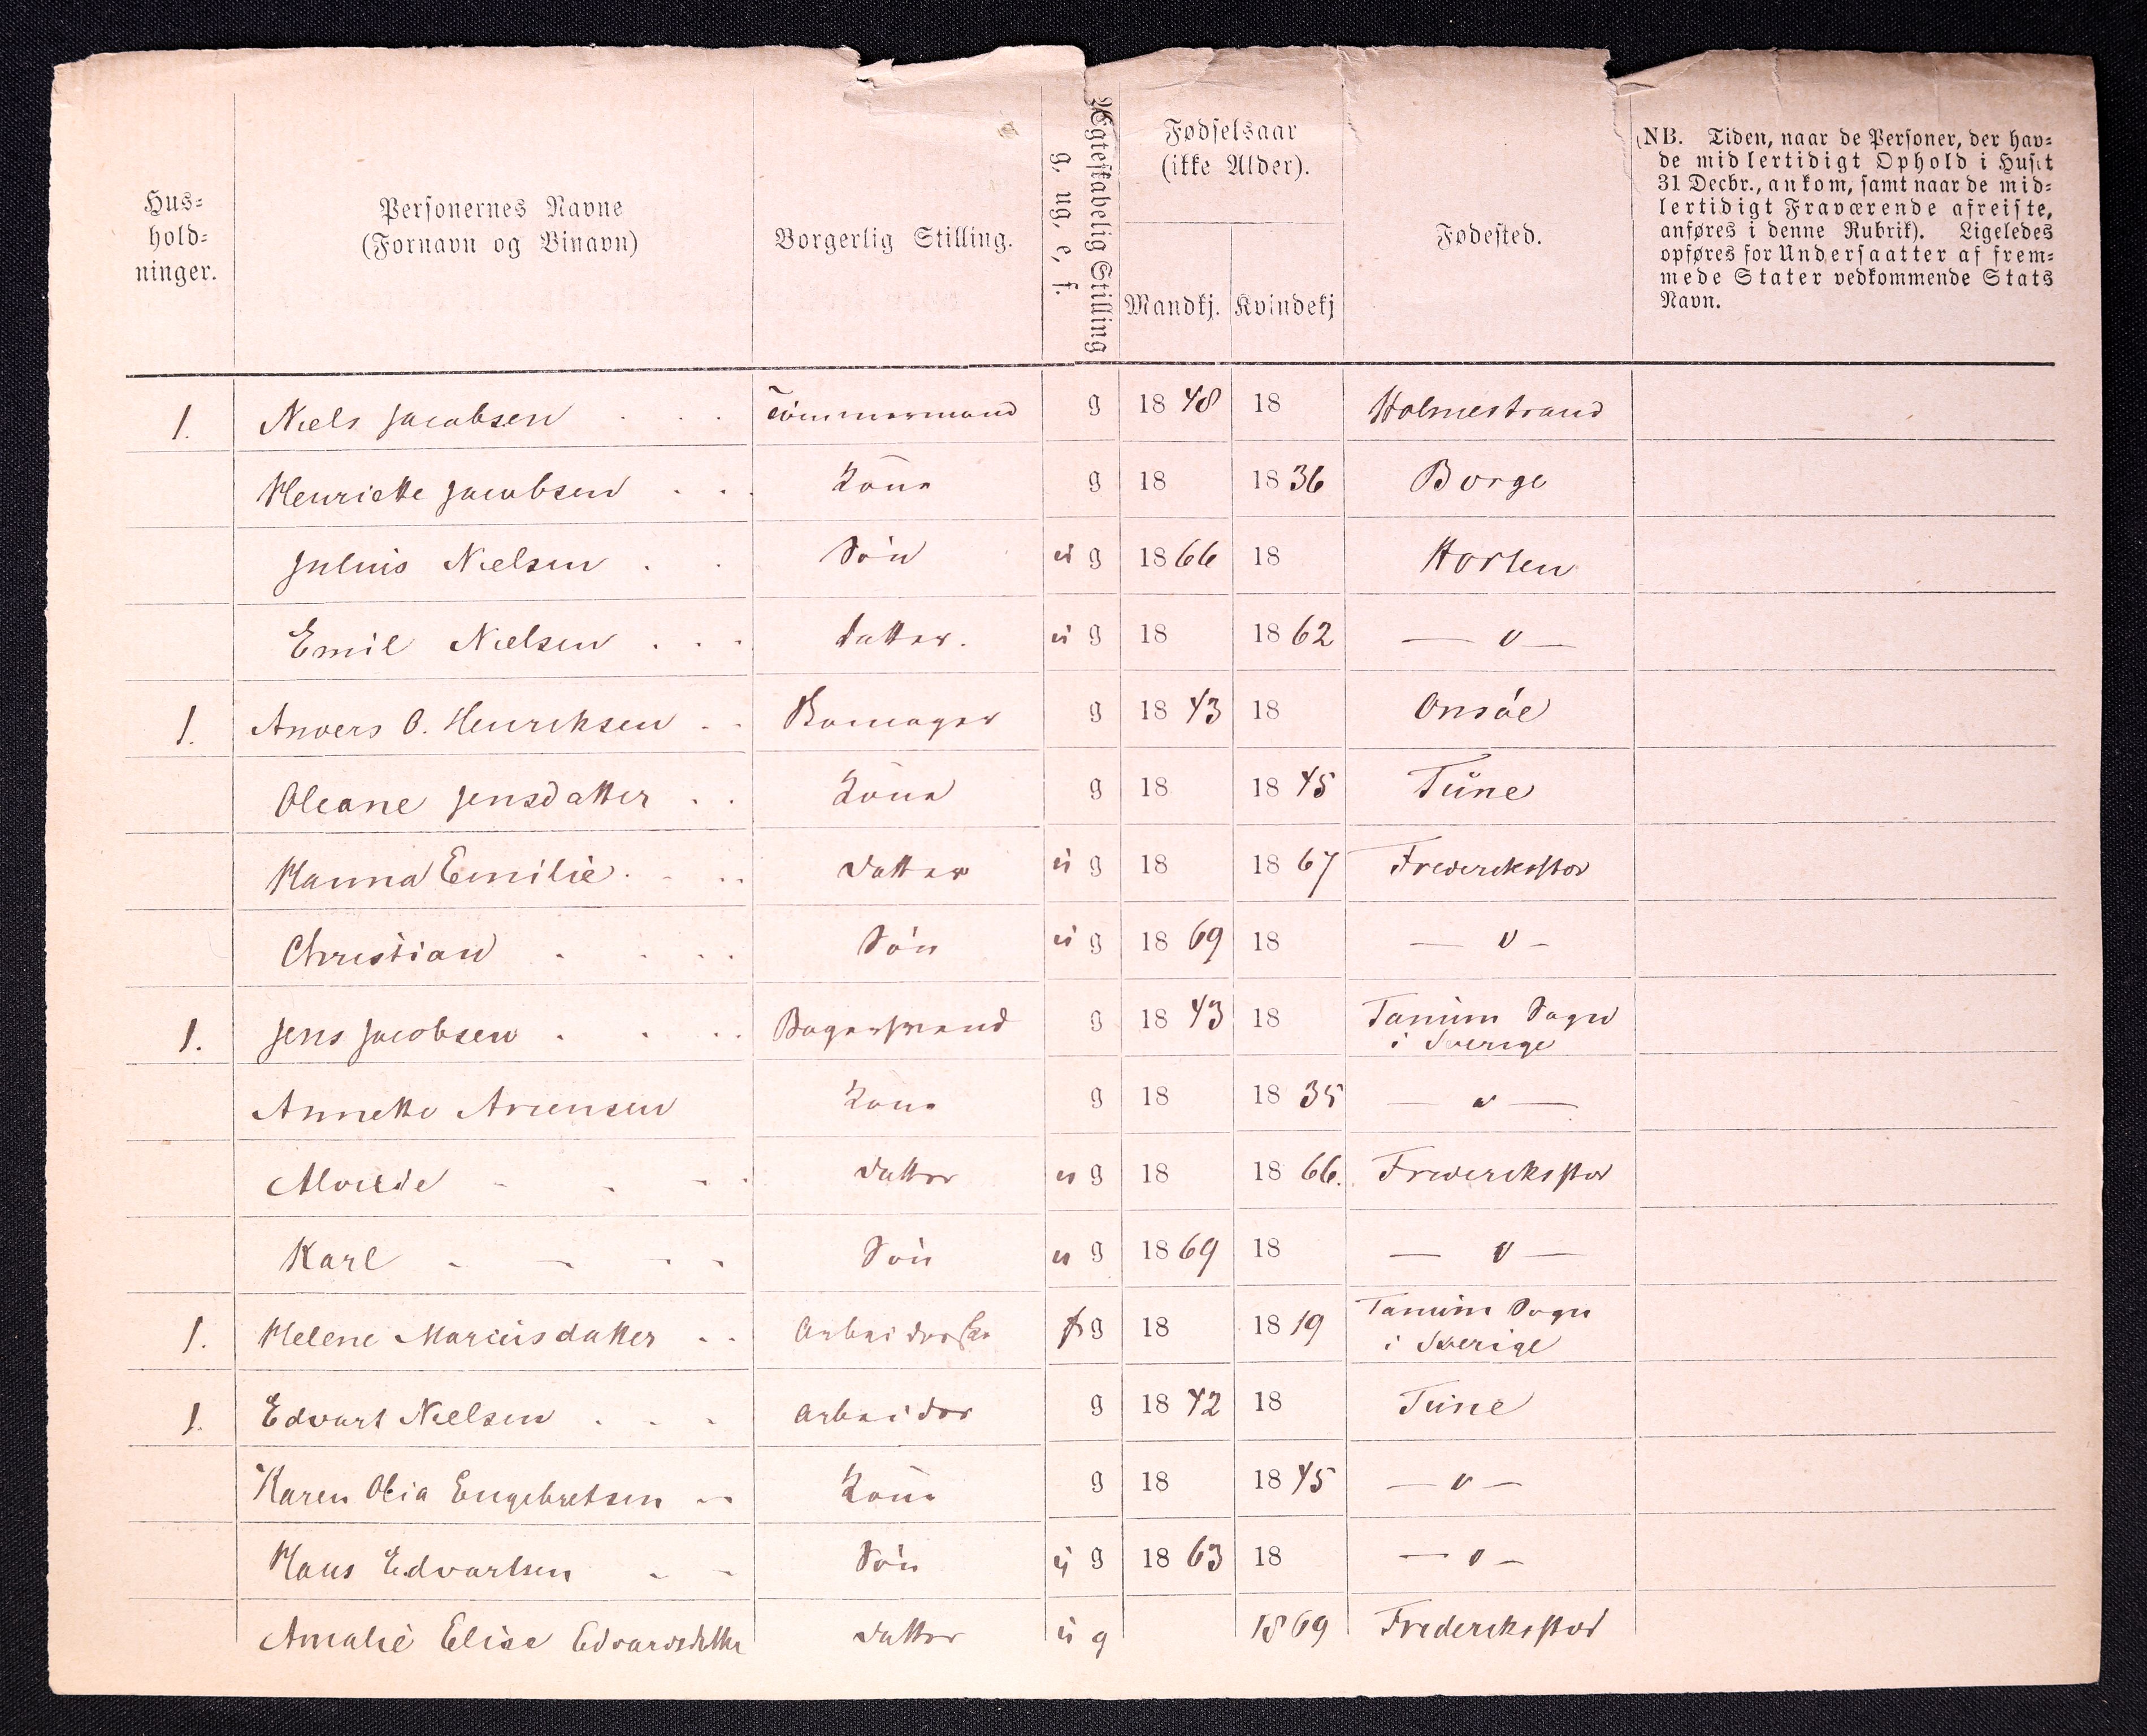 Hus-
hold-
ninger.
Personernes Navne
(Fornavn og Binavn)
Borgerlig Stilling.
Ægteskabelig Stilling
g, ug, e, f.
Fødselsaar
(ikke Alder).
Mandkj. Kvindekj
Fødested.
(NB. Tiden, naar de Personer, der hav-
de midlertidigt Ophold i Huset
31 Decbr., ankom, samt naar de mid-
lertidigt Fraværende afreiste,
anføres i denne Rubrik). Ligeledes
opføres for Undersaatter af frem-
mede Stater vedkommende Stats
Navn.
1. Niels Jacobsen . . . Tömmermand g 1848 18 Holmestrand
Henriette Jacobsen . . . Kone g 18 1836 Borge
Julius Nielsen . . Sön ug 1866 18 Horten
Emil Nielsen . . . datter. ug 18 1862 — " —
1. Anders O. Henriksen . . g 1843 18 Onsöe
Oleane Jensdatter . . Kone g 18 1845 Tune
Hanna Emilie . . . . datter ug 18 1867 Frederiksstad
Christian . . . . Sön ug 1869 18 — " —
1. Jens Jacobsen . . . Bagersvend g 1843 18 Tanum Sogn
i Sverige
Annette Arensen Kone g 18 1835 — " —
datter ug 18 1866. Frederiksstad
Karl - - - - Sön ug 1869 18 — " —
1. Helene Mariusdatter . . Arbeiderske g 18 1819 Tanum Sogn
i Sverige
1. Edvart Nielsen . . . Arbeider g 1842 18 Tune
Karen Olia Engebretsen - - Kone g 18 1845 — " —
Hans Edvartsen - - Sön ug 1863 18 — " —
Amalie Elise Edvardsdatter datter ug 1869 Frederiksstad